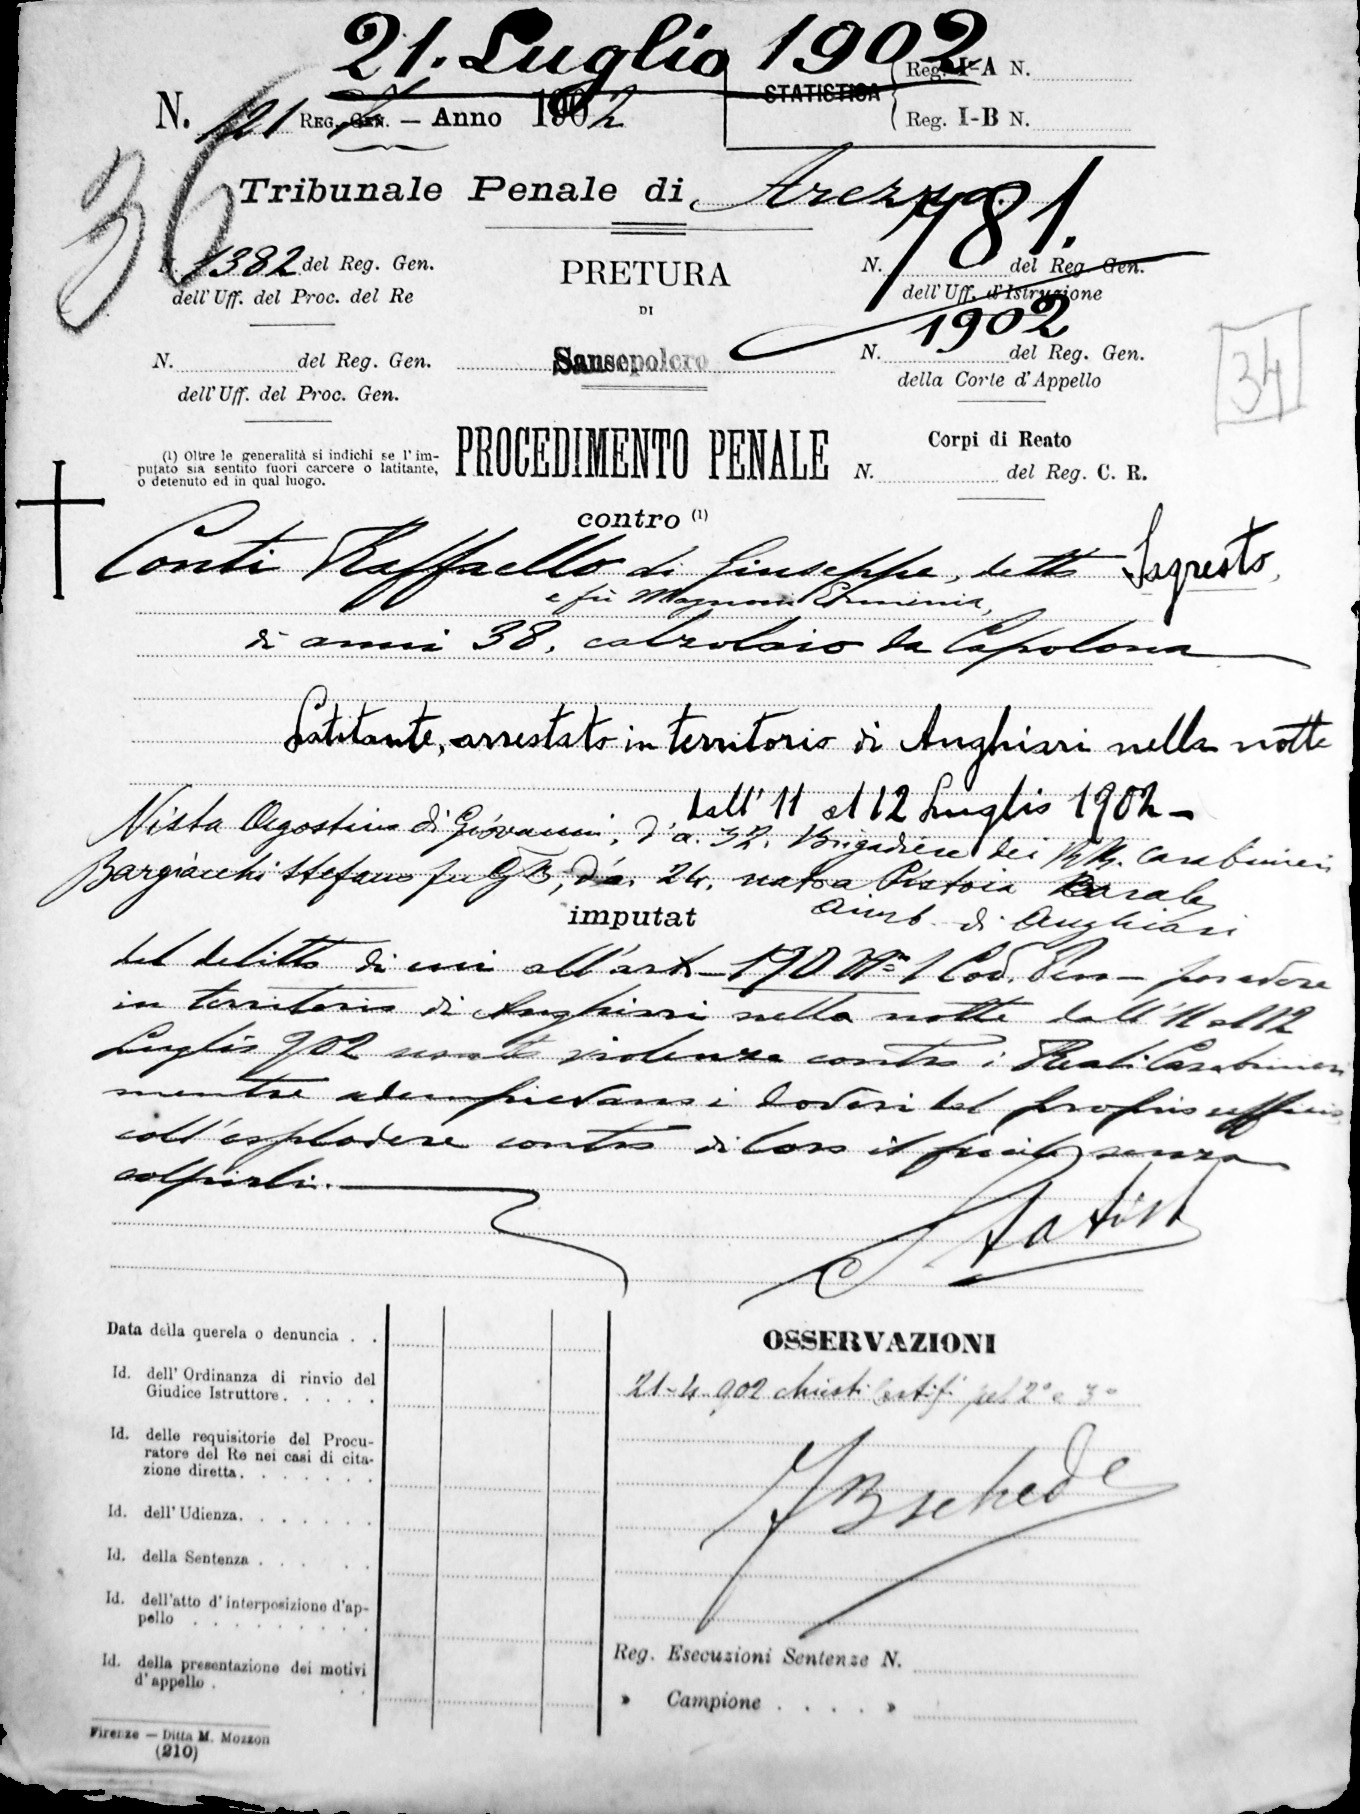 21. Luglio 1902
STATISTICA
Reg. I-A N.
Reg. I-B N.
N. 121 REG. GEN. — Anno 1902
36
Tribunale Penale di Arezzo
1382 del Reg. Gen.
dell' Uff. del Proc. del Re
PRETURA
DI
Sansepolcro
N. 781. del Reg. Gen.
dell' Uff. d'Istruzione
1902
N. del Reg. Gen.
dell' Uff. del Proc. Gen.
N. del Reg. Gen.
della Corte d'Appello
34
(1) Oltre le generalità si indichi se l'im-
putato sia sentito fuori carcere o latitante,
o detenuto ed in qual luogo.
PROCEDIMENTO PENALE
Corpi di Reato
N. del Reg. C. R.
contro (1)
Conti Raffaello di Giuseppe, detto Sagresto,
e fu Magnoni Erminia,
di anni 38, calzolaio da Capolona
Latitante, arrestato in territorio di Anghiari nella notte
dall' 11 al 12 Luglio 1902 —
Nista Agostino di Giovanni, d'a. 32. Brigadiere dei RR. Carabinieri
Bargiacchi Stefano fu G B, d'a. 24. nato a Pistoia
di Anghiari
imputat
del delitto di cui all'art. 190 N° 1 Cod. Pen — per avere
in territorio di Anghiari nella notte dall' 11 al 12
Luglio 902 usato violenza contro i Reali Carabinieri
mentre adempievano i doveri del proprio ufficio,
coll'esplodere contro di loro il fucile senza
colpirli.
Data della querela o denuncia . .
Id. dell' Ordinanza di rinvio del
Giudice Istruttore . . . . .
Id. delle requisitorie del Procu-
ratore del Re nei casi di cita-
zione diretta . . . . . . .
Id. dell' Udienza . . . . . . .
Id. della Sentenza . . . . .
Id. dell'atto d'interposizione d'ap-
pello . . . . . . . . .
Id. della presentazione dei motivi
d'appello . . .
OSSERVAZIONI
902 chiesti Certif pel 2° e 3°
Reg. Esecuzioni Sentenze N.
» Campione . . . . »
Firenze — Ditta M. Mozzon
(210)